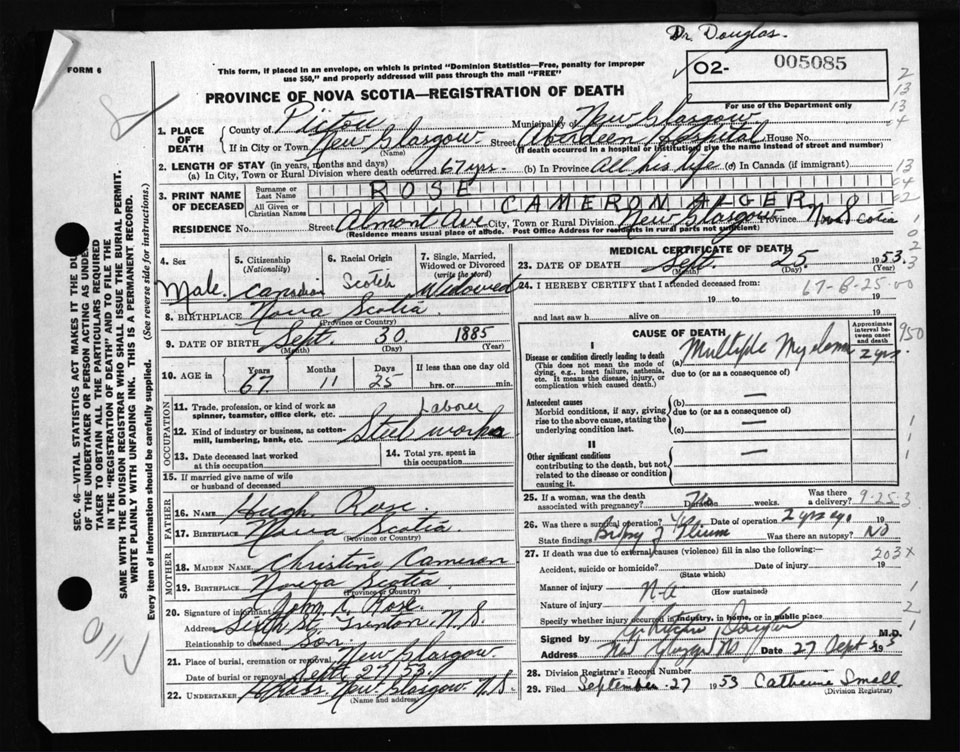 Dr. Douglas.
FORM 6
This form, if placed in an envelope, on which is printed "Dominion Statistics—Free, penalty for improper
use $50," and properly addressed will pass through the mail "FREE"
O2- 005085
For use of the Department only
PROVINCE OF NOVA SCOTIA—REGISTRATION OF DEATH
1. PLACE OF DEATH
County of Pictou Municipality of New Glasgow
If in City or Town New Glasgow Street Aberdeen Hospital House No.
(Name) (If death occurred in a hospital or institution, give the name instead of street and number)
2. LENGTH OF STAY (in years, months and days)
(a) In City, Town or Rural Division where death occurred 67 yrs (b) In Province All his life (c) In Canada (if immigrant)
3. PRINT NAME OF DECEASED
Surname or Last Name ROSE
All Given or Christian Names CAMERON ALGER
RESIDENCE No. Street Almont Ave City, Town or Rural Division New Glasgow Province Nova Scotia
(Residence means usual place of abode. Post Office Address for residents in rural parts not sufficient)
4. Sex Male.
5. Citizenship (Nationality) Canadian
6. Racial Origin Scotch
7. Single, Married, Widowed or Divorced (write the word) Widowed
8. BIRTHPLACE Nova Scotia
(Province or Country)
9. DATE OF BIRTH Sept. 30. 1885
(Month) (Day) (Year)
10. AGE in Years Months Days If less than one day
67 11 25 hrs. or min.
OCCUPATION
11. Trade, profession, or kind of work as spinner, teamster, office clerk, etc. Laborer
12. Kind of industry or business, as cotten-mill, lumbering, bank, etc. Steel works
13. Date deceased last worked at this occupation
14. Total yrs. spent in this occupation
15. If married give name of wife or husband of deceased
FATHER
16. Name Hugh Rose.
17. Birthplace Nova Scotia.
(Province or Country)
MOTHER
18. MAIDEN NAME Christine Cameron
19. BIRTHPLACE Nova Scotia
(Province or Country)
20. Signature of informant John R. Rose.
Address Sixth St. Trenton, N.S.
Relationship to deceased Son.
21. Place of burial, cremation or removal New Glasgow.
Date of burial or removal Sept. 27/53.
22. UNDERTAKER New Glasgow. N.S.
(Name and address)
MEDICAL CERTIFICATE OF DEATH
23. DATE OF DEATH Sept. 25 1953.
(Month) (Day) (Year)
24. I HEREBY CERTIFY that I attended deceased from:
19 to 19
and last saw h alive on 19
CAUSE OF DEATH
Approximate interval between cause and death
I
Disease or condition directly leading to death
(This does not mean the mode of dying, e.g., heart failure, asthenia, etc. It means the disease, injury, or complication which caused death.)
(a) Multiple Myeloma 2 yrs.
due to (or as a consequence of)
Antecedent causes
Morbid conditions, if any, giving rise to the above cause, stating the underlying condition last.
(b) —
due to (or as a consequence of)
(c) —
II
Other significant conditions
contributing to the death, but not related to the disease or condition causing it. —
25. If a woman, was the death associated with pregnancy? No Duration weeks. Was there a delivery?
9-25-3
26. Was there a surgical operation? Yes Date of operation 2 yrs ago. 19
State findings Biopsy of Ileum Was there an autopsy? No
27. If death was due to external causes (violence) fill in also the following:—
203X
Accident, suicide or homicide? Date of injury 19
(State which)
Manner of injury N-A
(How sustained)
Nature of injury
Specify whether injury occurred in industry, in home, or in public place
Signed by M.D.
Address New Glasgow NS Date 27 Sept 1953
28. Division Registrar's Record Number
29. Filed September 27 1953 Catherine Small
(Division Registrar)
SEC. 46—VITAL STATISTICS ACT MAKES IT THE DUTY
OF THE UNDERTAKER OR PERSON ACTING AS UNDER-
TAKER TO OBTAIN ALL THE PARTICULARS REQUIRED
IN THE "REGISTRATION OF DEATH" AND TO FILE THE
SAME WITH THE DIVISION REGISTRAR WHO SHALL ISSUE THE BURIAL PERMIT.
WRITE PLAINLY WITH UNFADING INK. THIS IS A PERMANENT RECORD.
Every item of information should be carefully supplied. (See reverse side for instructions.)